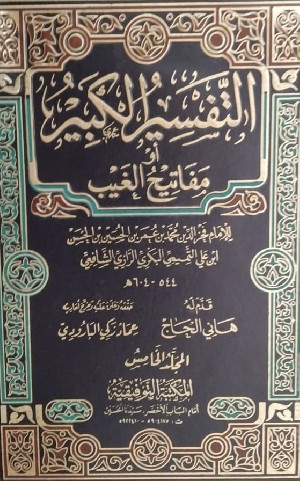 التفسير الكبير
أو
مفاتيح الغيب
للإمام فخر الدين محمد بن عمر بن الحسين بن الحسن
ابن علي التميمي البكري الرازي الشافعي
٥٤٤ - ٦٠٤ هـ
قدم له
هاني الحاج
حققه وعلق عليه وخرج أحاديثه
عماد زكي البارودي
المجلد الخامس
المكتبة التوفيقية
أمام الباب الأخضر - سيدنا الحسين
ت : ٥٩٠٤١٧٥ - ٥٩٢٢٤١٠